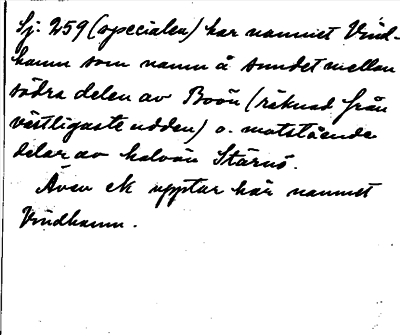 Sj. 259 (specialen) har namnet Vind-
hamn som namn å sundet mellan
södra delen av Boön (räknad från
västligaste udden) o. motstående
delar av halvön Stärnö.
Även ek upptar här namnet
Vindhamn.